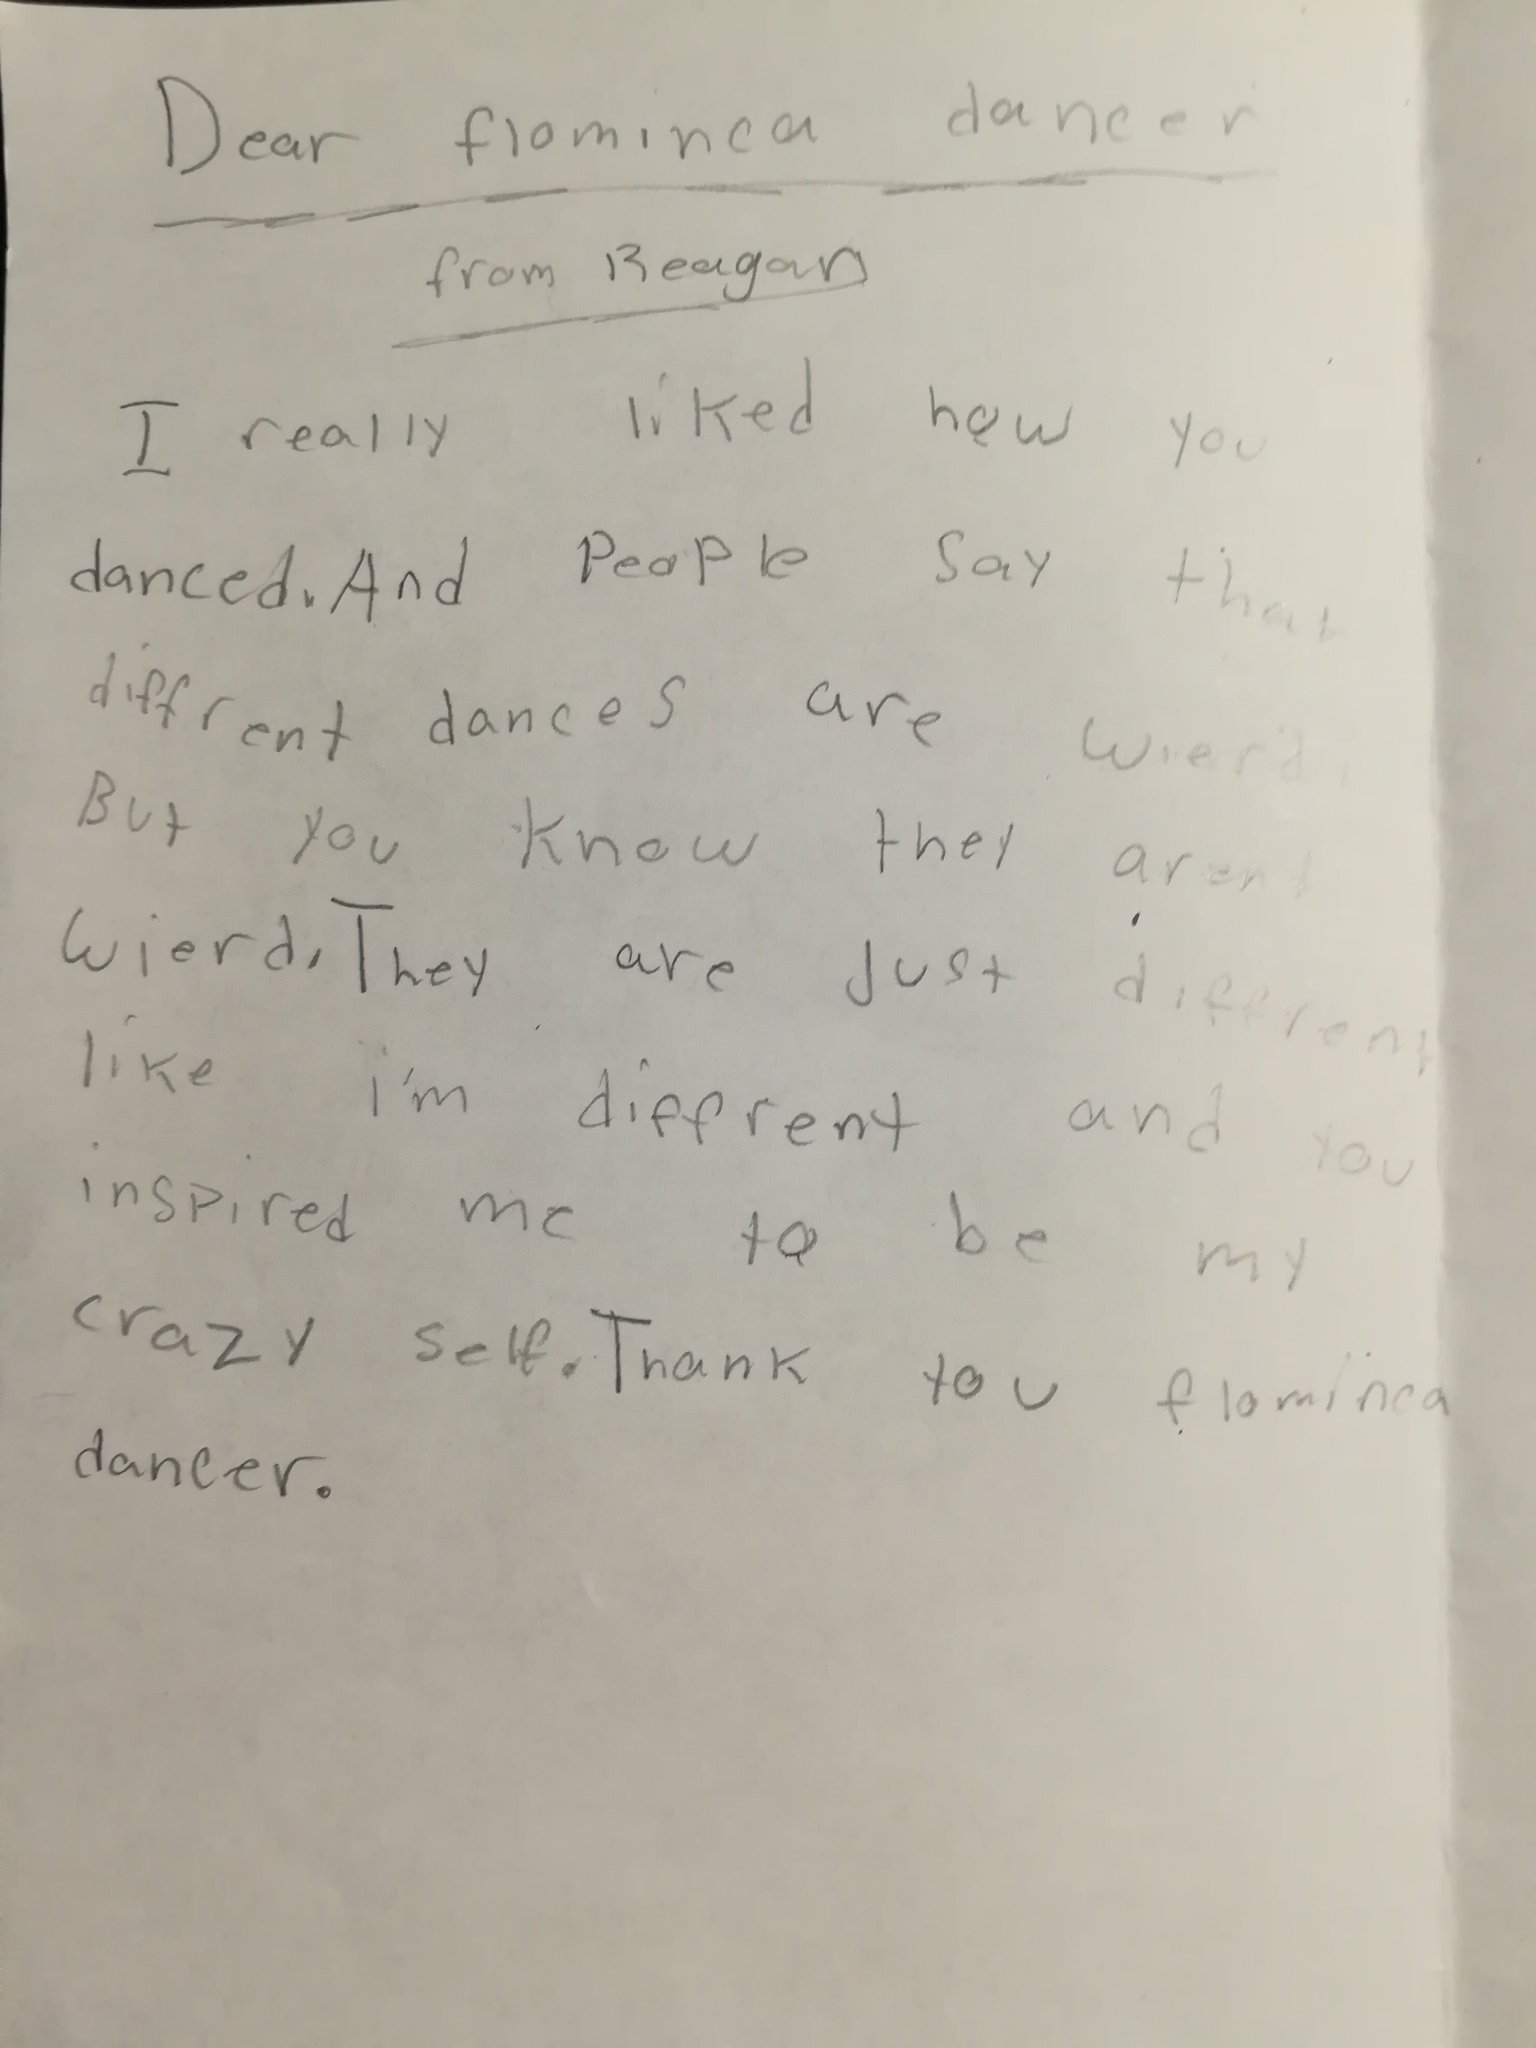 Dear flominca dancer
from Reagan
I really liked how you
danced. And People say that
diffrent dances are wierd.
But you know they arent
wierd. They are just diffrent
like i'm diffrent and you
inspired me to be my
crazy self. Thank you flominca
dancer.